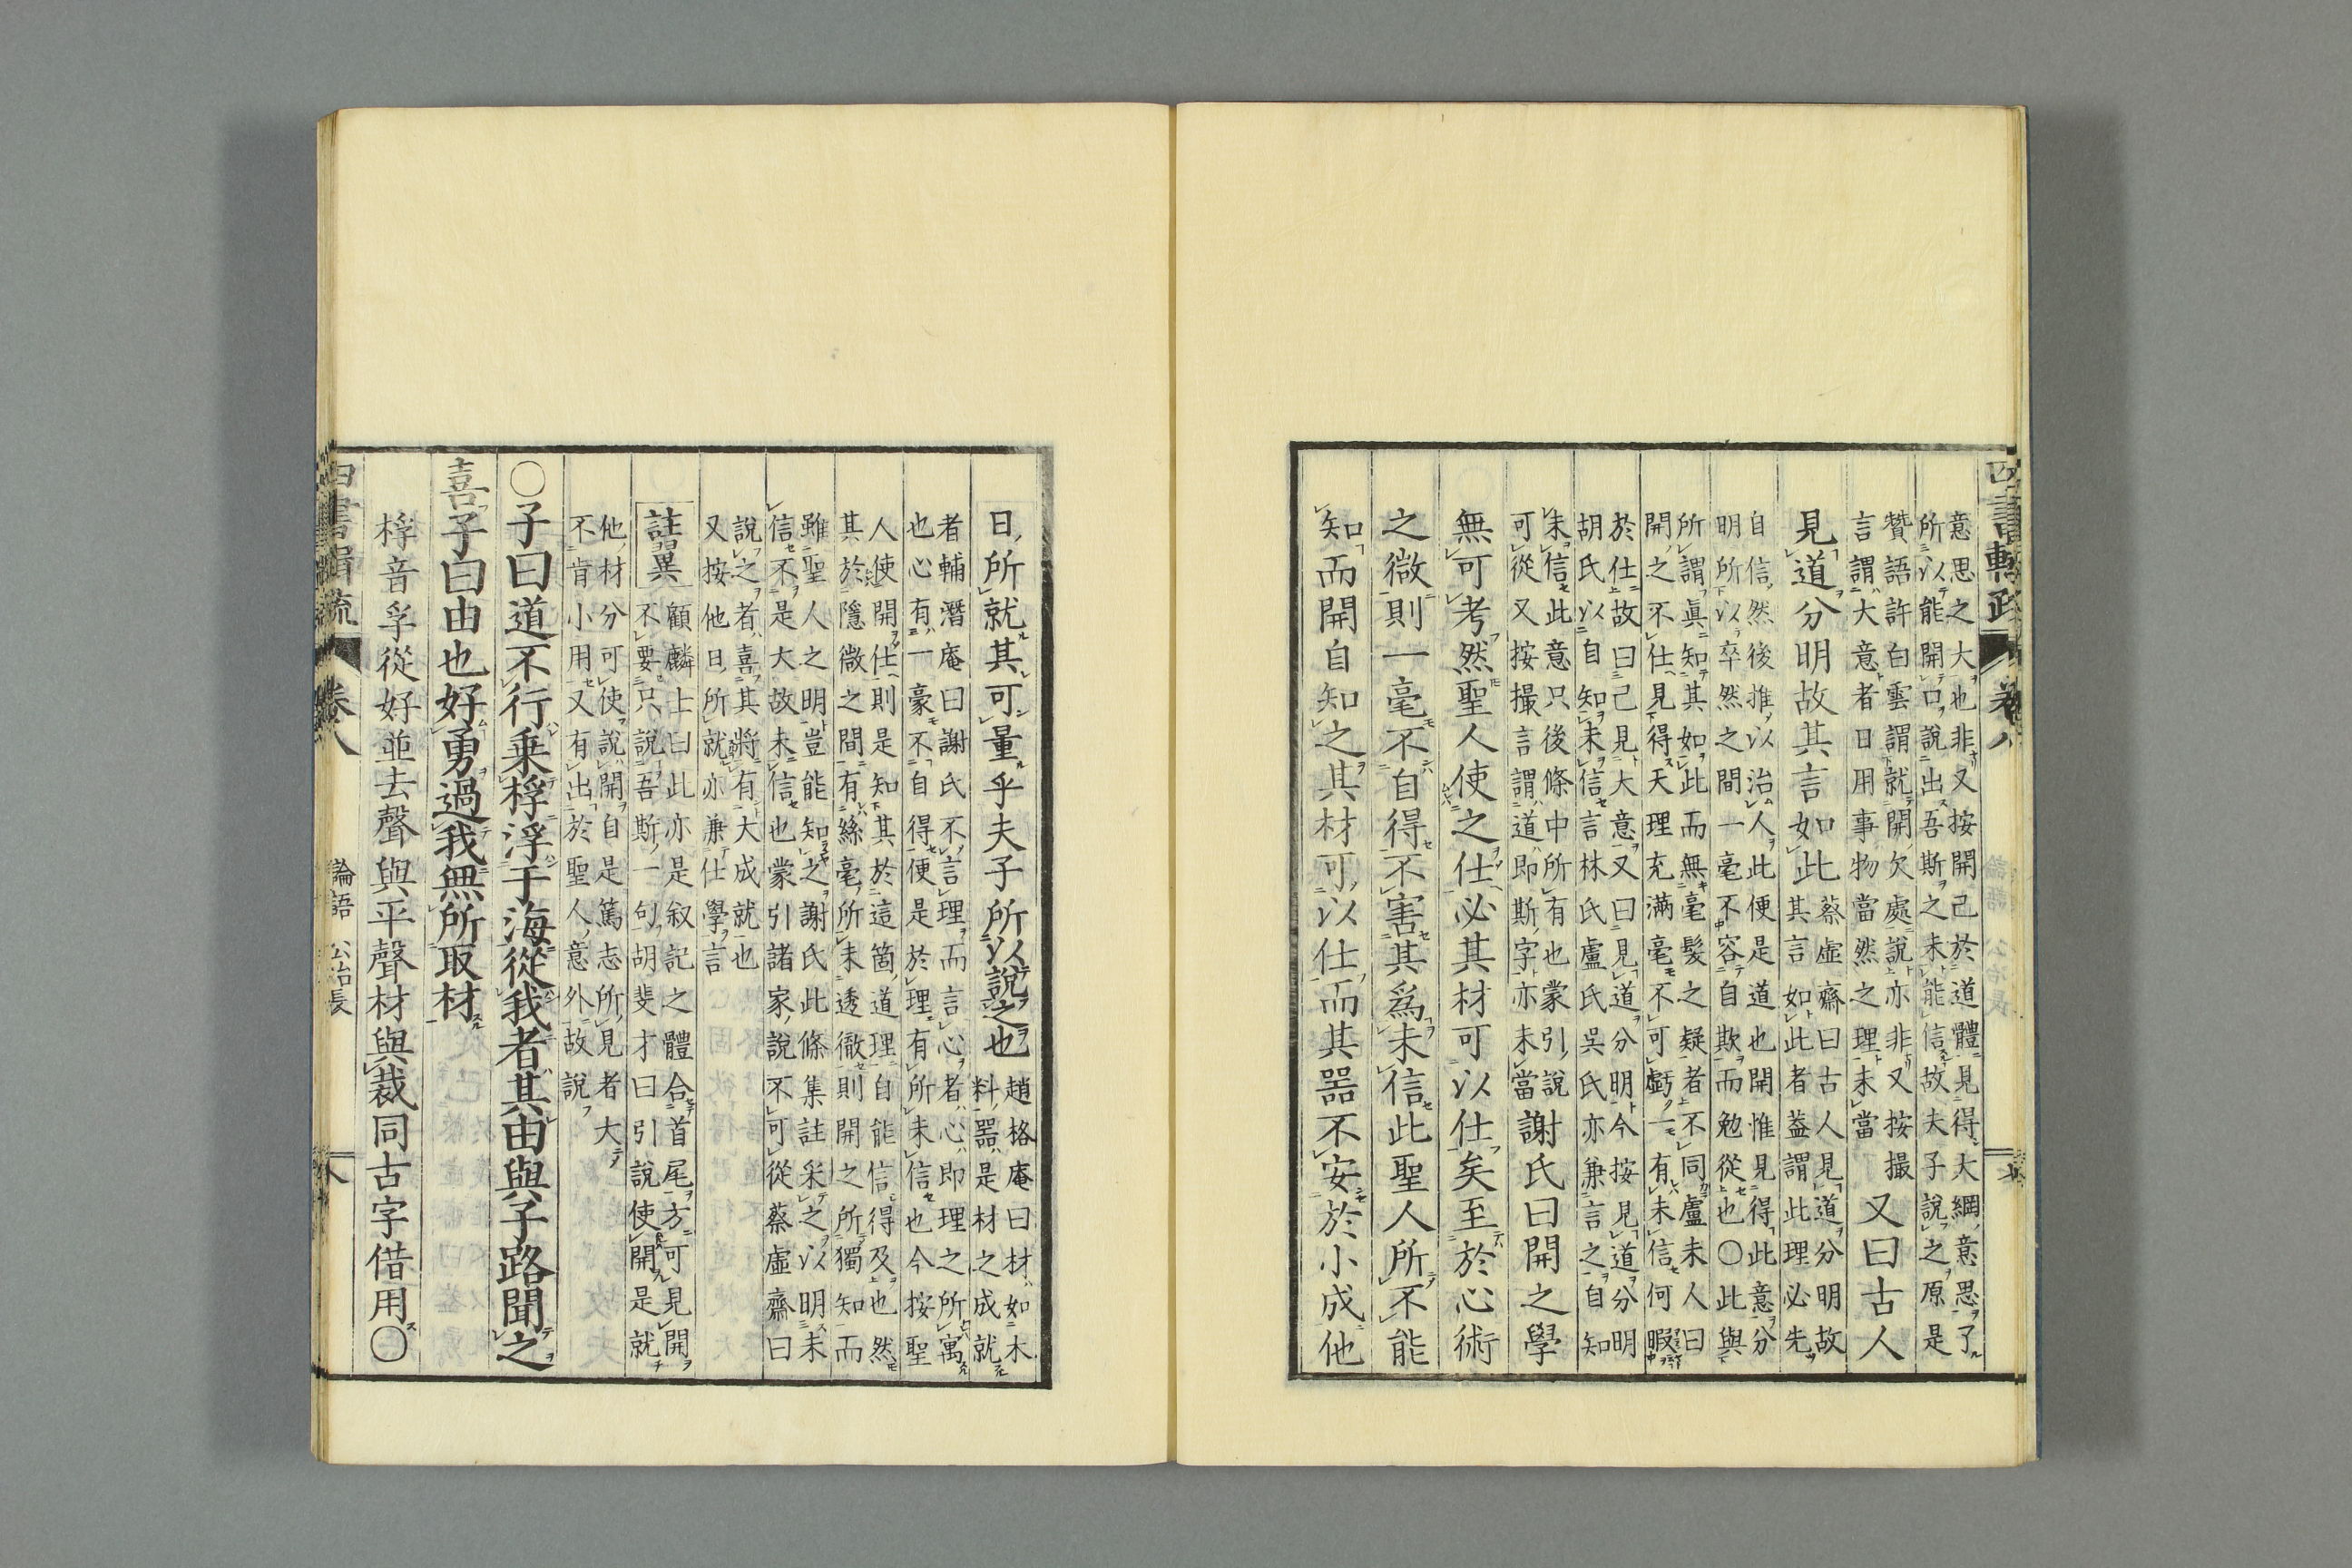 意思之大也非又按開己於道體見得大綱意思了
所以能開口說出吾斯之未能信故夫子說之原是
贊語許白雲謂就開欠處說亦非又按撮
言謂大意者日用事物當然之理未當
又曰古人
見道分明故其言如此
蔡虛齋曰古人見道分明故
其言如此者蓋謂此理必先
自信然後推以治人此便是道也開惟見得此意分
明所以卒然之間一毫不容自欺而勉從也〇此與
所謂眞知其如此而無毫髮之疑者不同盧未人曰
開之不仕見得天理充滿毫不可虧一有未信何暇
於仕故曰己見大意又曰見道分明今按見道分明
胡氏以自知未信言林氏盧氏吳氏亦兼言之自知
未信此意只後條中所有也蒙引說
可從又按撮言謂道即斯字亦未當
謝氏曰開之學
無可考然聖人使之仕必其材可以仕矣至於心術
之微則一毫不自得不害其爲未信此聖人所不能
知而開自知之其材可以仕而其器不安於小成他
四書輯疏 卷八
日所就其可量乎夫子所以說之也
趙格庵曰材如木
料器是材之成就
者輔潛庵曰謝氏不言理而言心者心即理之所寓
也心有一豪不自得便是於理有所未信也今按聖
人使開仕則是知其於這箇道理自能信得及也然
其於隱微之間有絲毫所未透徹則開之所獨知而
雖聖人之明豈能知之謝氏此條集註采之以明未
信不是大故未信也蒙引諸家說不可從蔡虛齋曰
說之者喜其將有大成就也
又按他日所就亦兼仕學言
註翼
顧麟士曰此亦是叙記之體合首尾方可見開
不要只說吾斯一句胡斐才曰引說使開是就
他材分可使說開自是篤志所見者大
不肯小用又有出於聖人意外故說
〇子曰道不行乘桴浮于海從我者其由與子路聞之
喜子曰由也好勇過我無所取材
桴音孚從好並去聲與平聲材與裁同古字借用〇
四書輯疏 卷八 論語 公冶長 八